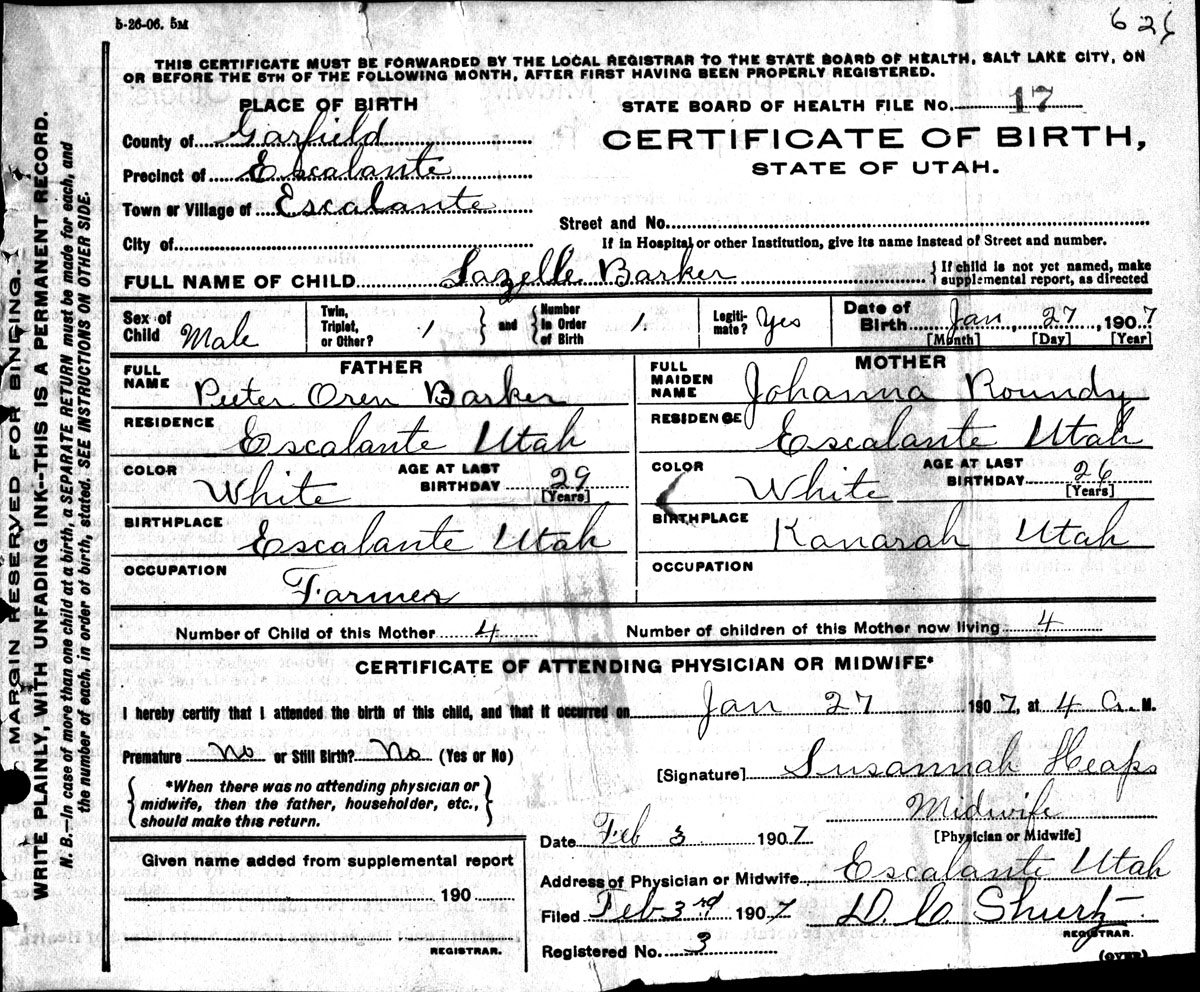 5-26-06. 5M
62
THIS CERTIFICATE MUST BE FORWARDED BY THE LOCAL REGISTRAR TO THE STATE BOARD OF HEALTH, SALT LAKE CITY, ON
OR BEFORE THE 5TH OF THE FOLLOWING MONTH, AFTER FIRST HAVING BEEN PROPERLY REGISTERED.
PLACE OF BIRTH
STATE BOARD OF HEALTH FILE No. 17
County of Garfield
CERTIFICATE OF BIRTH,
STATE OF UTAH.
Precinct of Escalante
Town or Village of Escalante
Street and No.
City of
If in Hospital or other Institution, give its name instead of Street and number.
FULL NAME OF CHILD Lazelle Barker
{ If child is not yet named, make
supplemental report, as directed
Sex of
Child Male
Twin,
Triplet,
or Other? /
} and {
Number
in Order
of Birth /
Legiti-
mate? Yes
Date of
Birth Jan, 27, 1907
[Month] [Day] [Year]
FATHER
FULL
NAME Peeter Oren Barker
RESIDENCE Escalante Utah
COLOR White
AGE AT LAST
BIRTHDAY 29
[Years]
BIRTHPLACE Escalante Utah
OCCUPATION Farmer
MOTHER
FULL
MAIDEN
NAME Johanna Roundy
RESIDENCE Escalante Utah
COLOR White
AGE AT LAST
BIRTHDAY 26
[Years]
BIRTHPLACE Kanarah Utah
OCCUPATION
Number of Child of this Mother 4
Number of children of this Mother now living 4
CERTIFICATE OF ATTENDING PHYSICIAN OR MIDWIFE*
I hereby certify that I attended the birth of this child, and that it occurred on Jan 27 1907, at 4 A. M.
Premature No or Still Birth? No (Yes or No)
[Signature] Susannah Heaps
{ *When there was no attending physician or
midwife, then the father, householder, etc.,
should make this return. }
Midwife
[Physician or Midwife]
Date Feb 3 1907
Given name added from supplemental report
190
REGISTRAR.
Address of Physician or Midwife Escalante Utah
Filed Feb 3rd 1907
D. C Shurtz
REGISTRAR.
Registered No. 3
(OVER)
MARGIN RESERVED FOR BINDING.
WRITE PLAINLY, WITH UNFADING INK--THIS IS A PERMANENT RECORD.
N. B.—In case of more than one child at a birth, a SEPARATE RETURN must be made for each, and
the number of each, in order of birth, stated. SEE INSTRUCTIONS ON OTHER SIDE.